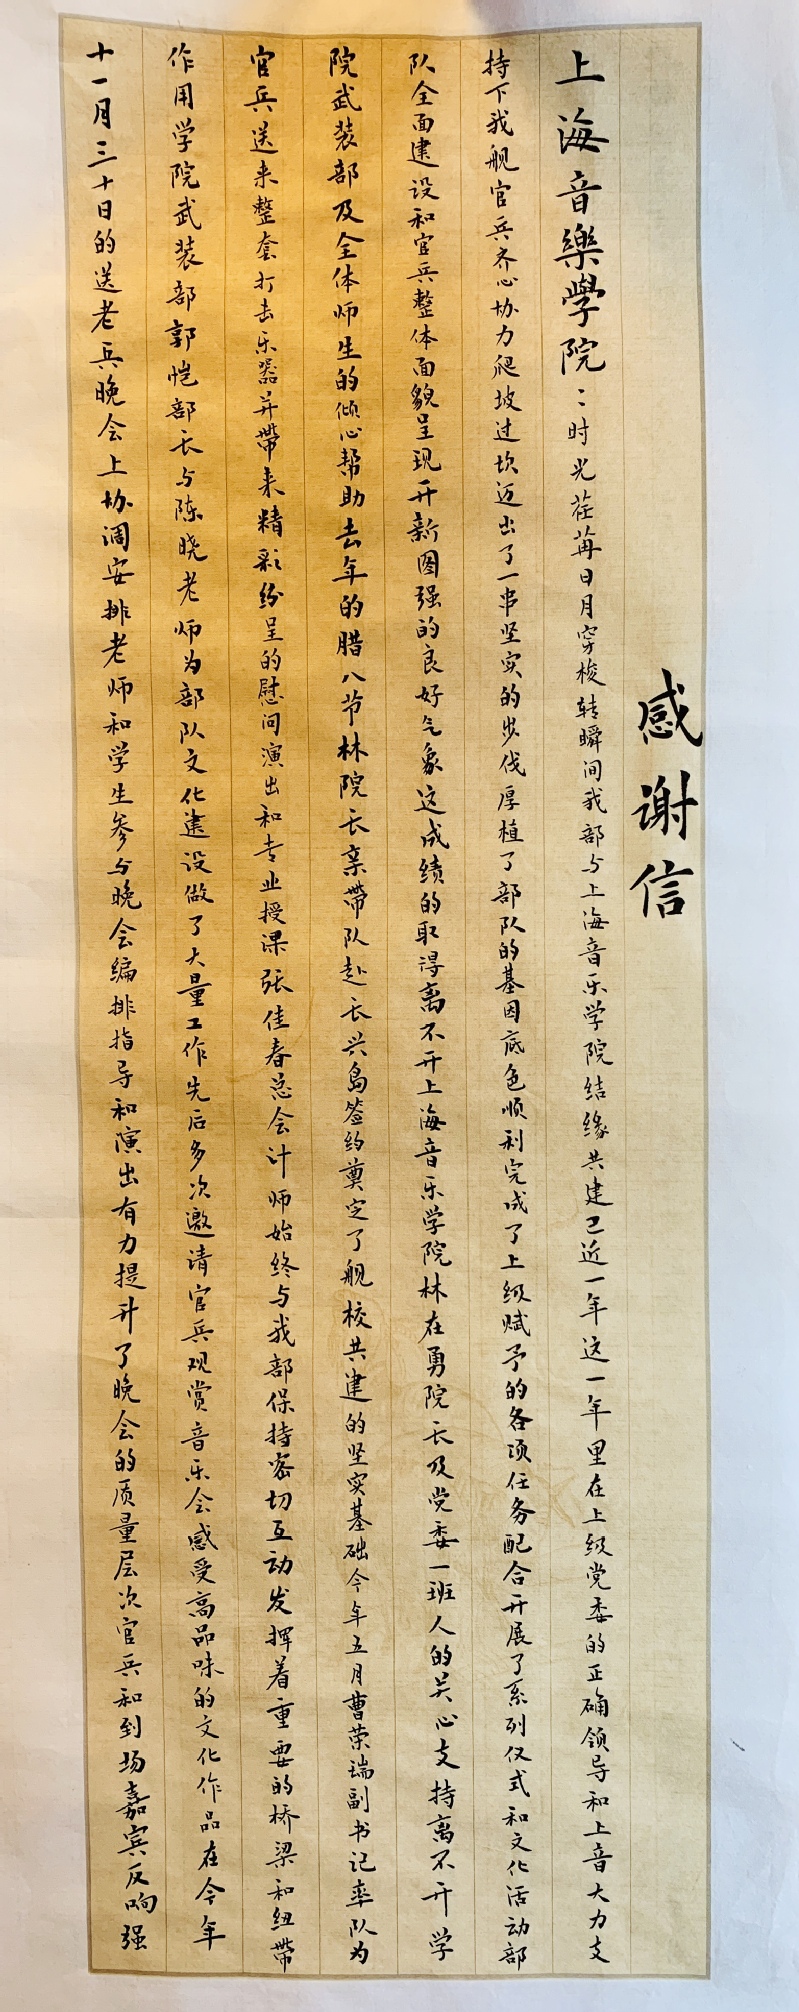 感谢信
上海音樂學院：时光荏苒日月穿梭转瞬间我部与上海音乐学院结缘共建已近一年这一年里在上级党委的正确领导和上音大力支
持下我舰官兵齐心协力爬坡过坎迈出了一串坚实的步伐厚植了部队的基因底色顺利完成了上级赋予的各项任务配合开展了系列仪式和文化活动部
队全面建设和官兵整体面貌呈现开新图强的良好气象这成绩的取得离不开上海音乐学院林在勇院长及党委一班人的关心支持离不开学
院武装部及全体师生的倾心帮助去年的腊八节林院长亲带队赴长兴岛签约奠定了舰校共建的坚实基础今年五月曹荣瑞副书记率队为
官兵送来整套打击乐器并带来精彩纷呈的慰问演出和专业授课张佳春总会计师始终与我部保持密切互动发挥着重要的桥梁和纽带
作用学院武装部郭恺部长与陈晓老师为部队文化建设做了大量工作先后多次邀请官兵观赏音乐会感受高品味的文化作品在今年
十一月三十日的送老兵晚会上协调安排老师和学生参与晚会编排指导和演出有力提升了晚会的质量层次官兵和到场嘉宾反响强